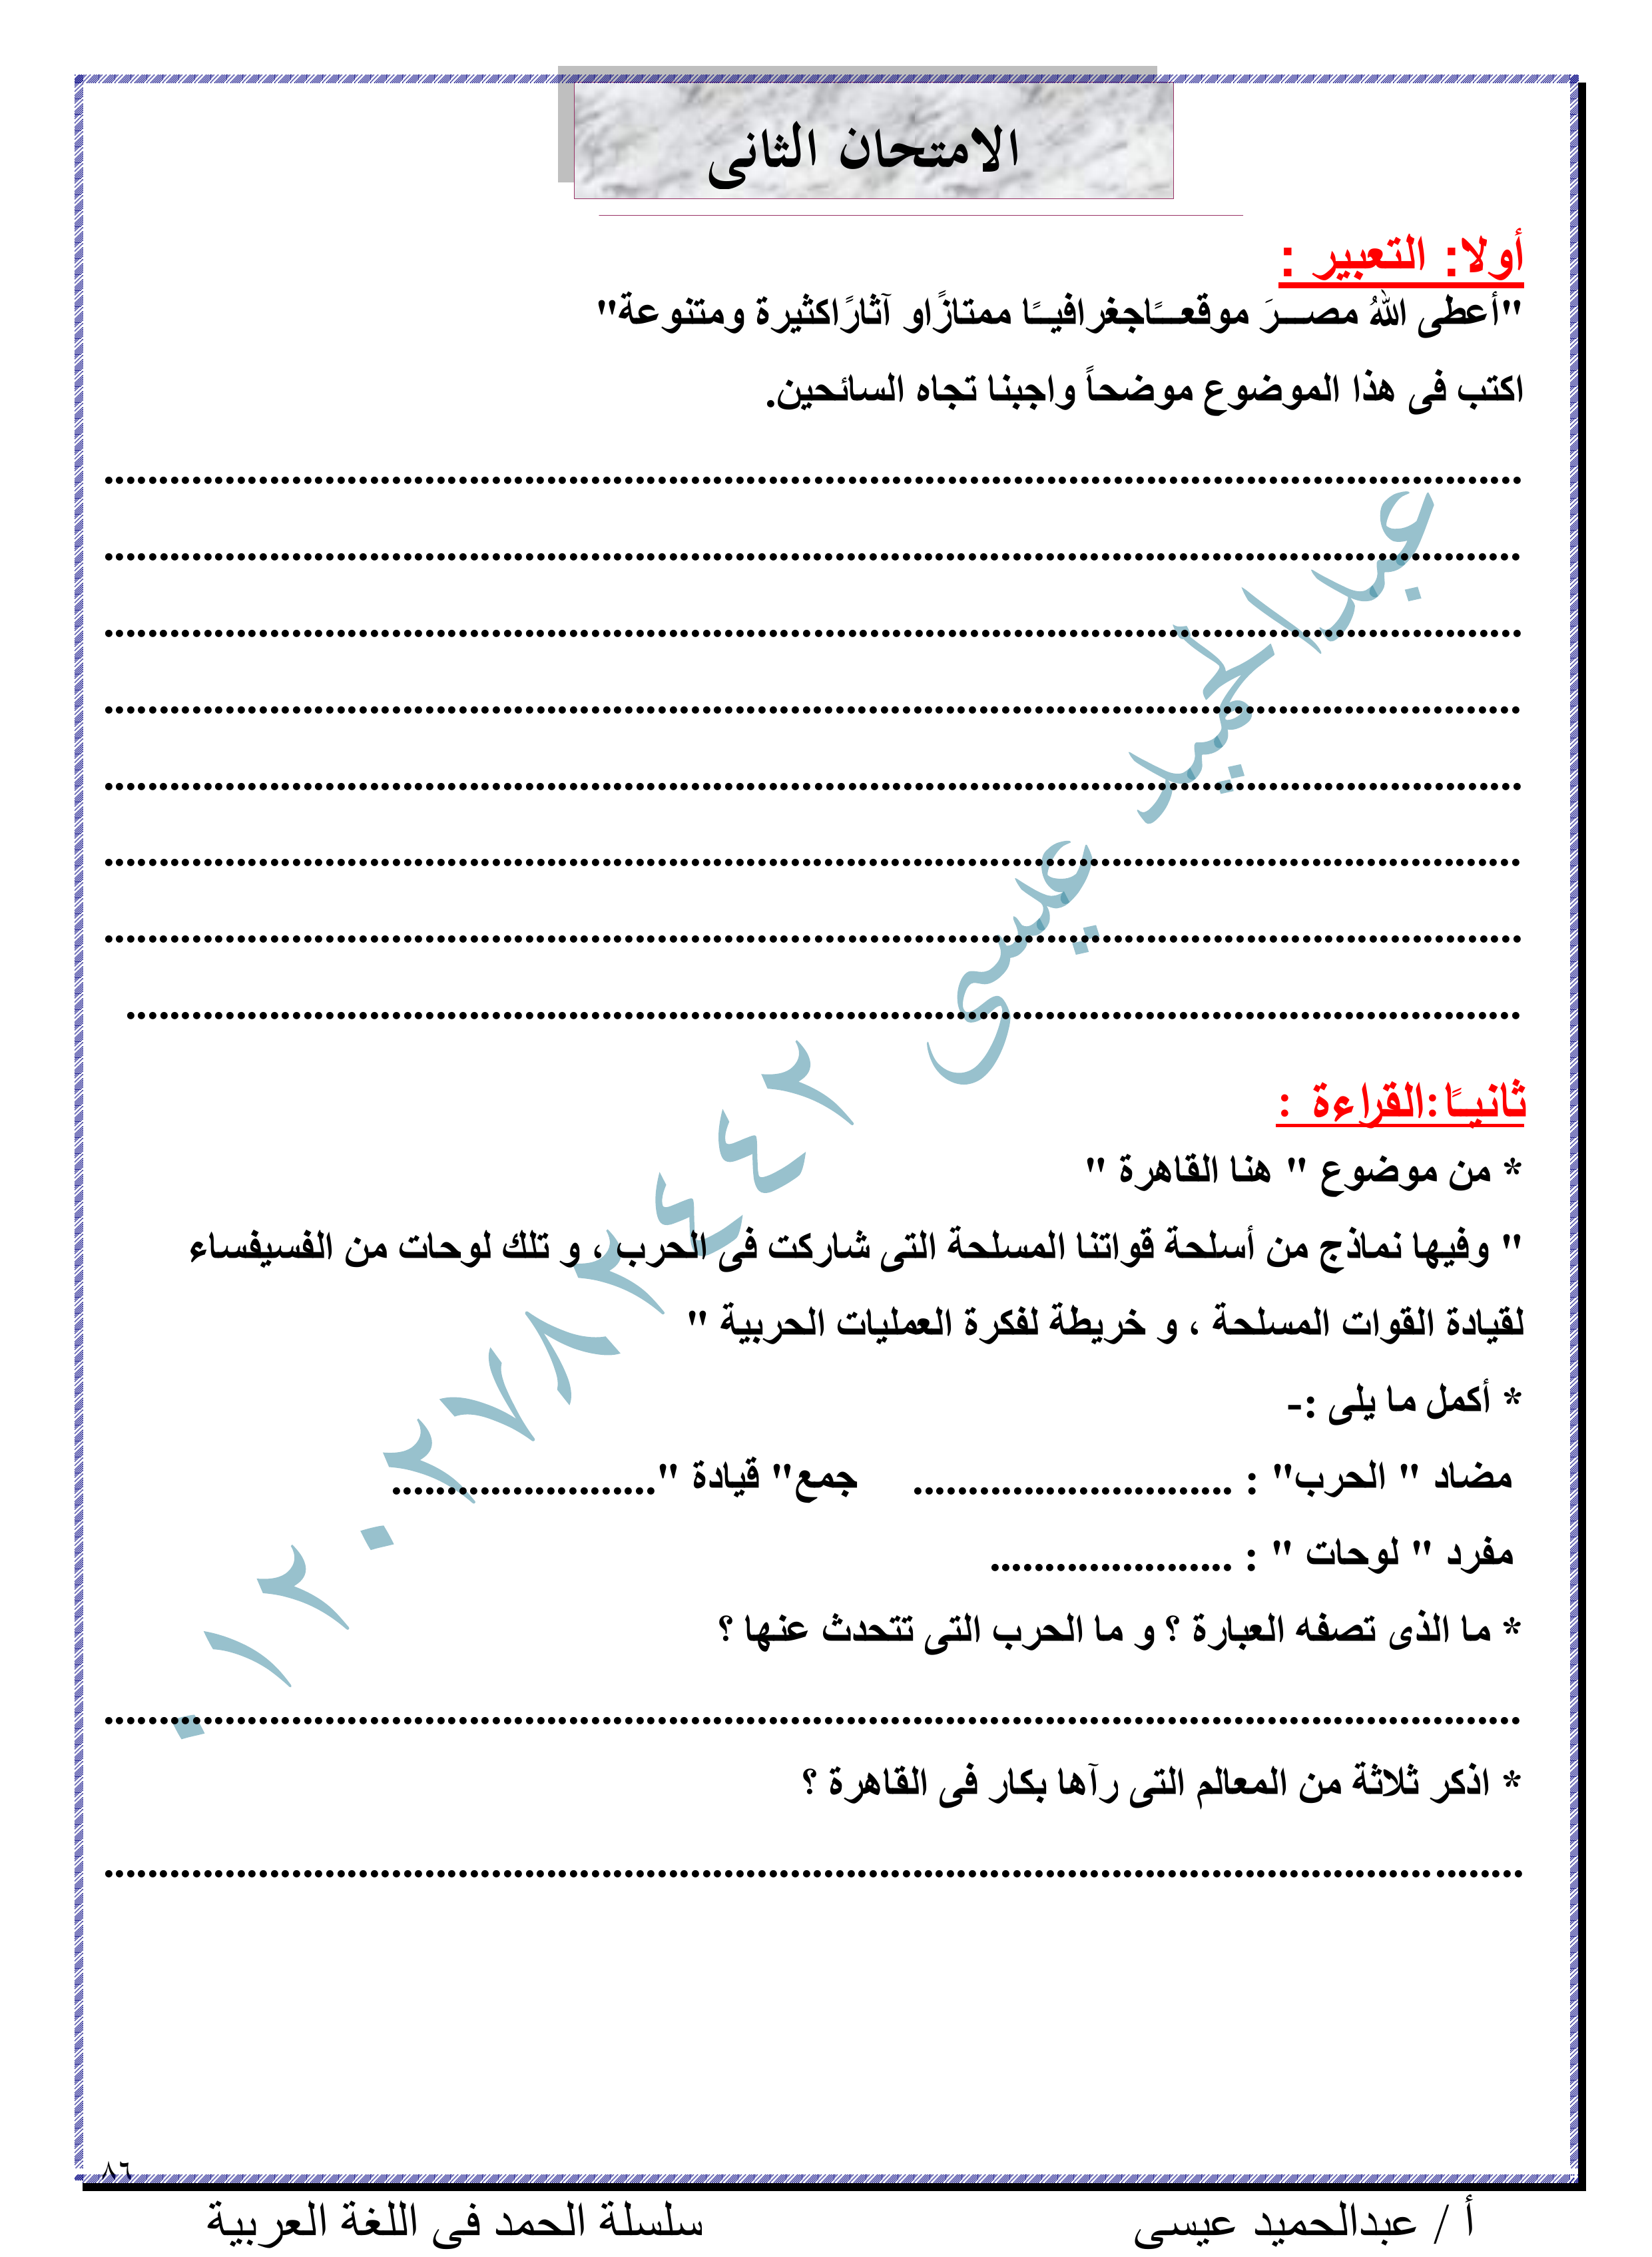 الامتحان الثانى
أولا: التعبير :
"أعطى اللهُ مصـــرَ موقعـــًاجغرافيــًا ممتازًاو آثارًاكثيرة ومتنوعة"
اكتب فى هذا الموضوع موضحاً واجبنا تجاه السائحين.
................................................................................................................................
................................................................................................................................
................................................................................................................................
................................................................................................................................
................................................................................................................................
................................................................................................................................
................................................................................................................................
..............................................................................................................................
ثانيــًا:القراءة :
* من موضوع " هنا القاهرة "
" وفيها نماذج من أسلحة قواتنا المسلحة التى شاركت فى الحرب ، و تلك لوحات من الفسيفساء
لقيادة القوات المسلحة ، و خريطة لفكرة العمليات الحربية "
* أكمل ما يلى :-
مضاد " الحرب" : ............................. جمع" قيادة "........................
مفرد " لوحات " : ......................
* ما الذى تصفه العبارة ؟ و ما الحرب التى تتحدث عنها ؟
................................................................................................................................
* اذكر ثلاثة من المعالم التى رآها بكار فى القاهرة ؟
................................................................................................................................
عبدالحميد عيسى ٠١٢٠٢٧٨٢٤٤٢
٨٦
أ / عبدالحميد عيسى سلسلة الحمد فى اللغة العربية